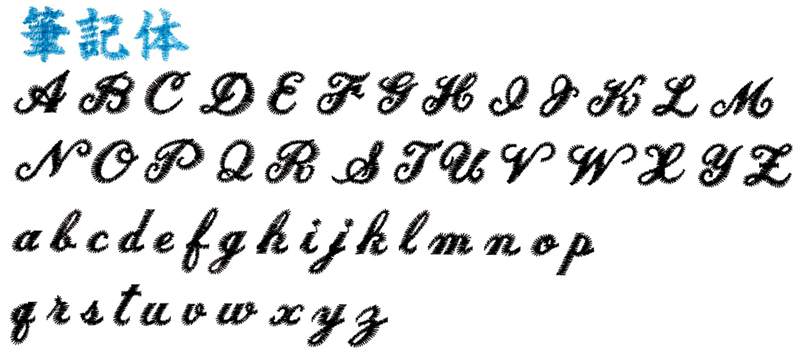 筆記体
A B C D E F G H I J K L M
N O P Q R S T U V W X Y Z
a b c d e f g h i j k l m n o p
q r s t u v w x y z